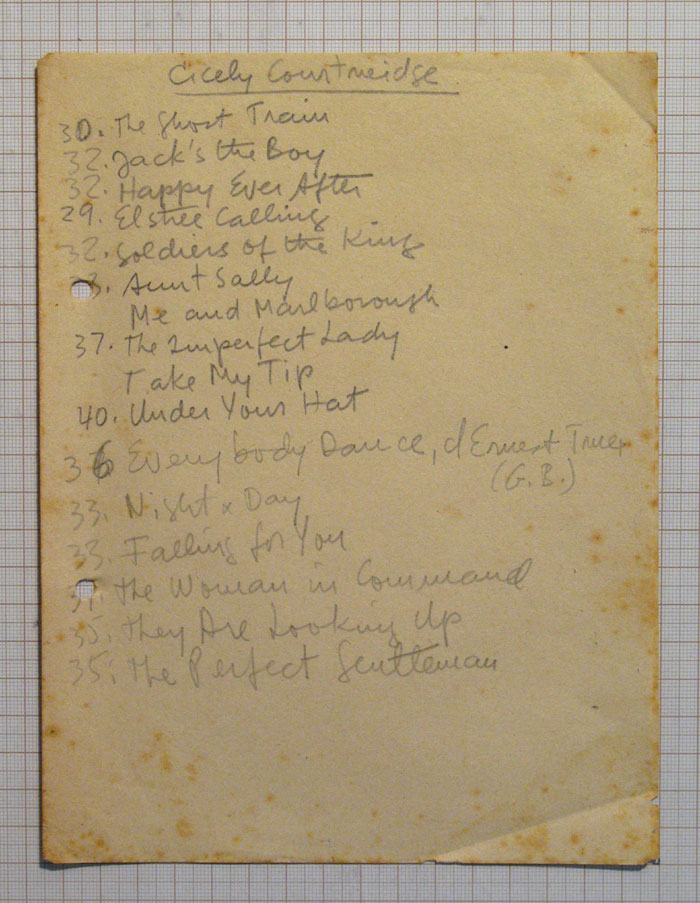 Cicely Courtneidge
30. The Ghost Train
32. Jack's the Boy
32. Happy Ever After
29. Elstree Calling
32. Soldiers of the King
3. Aunt Sally
Me and Marlborough
37. The Imperfect Lady
Take My Tip
40. Under Your Hat
36 Everybody Dance, d Ernest Truex
(G.B.)
33. Night x Day
33. Falling for You
The Woman in Command
35. They Are Looking Up
35. The Perfect Gentleman